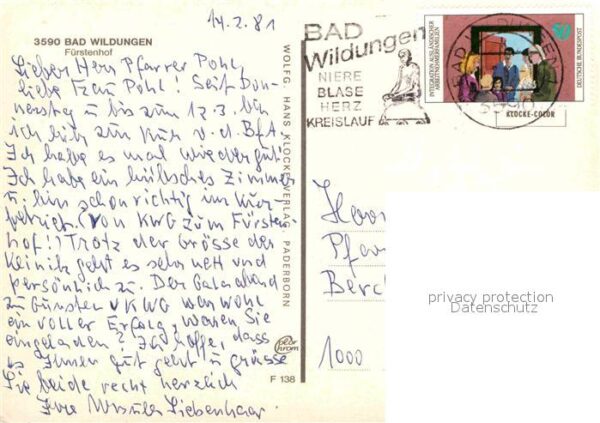 14.2.81
3590 BAD WILDUNGEN
Fürstenhof
Lieber Herr Pfarrer Pohl,
liebe Frau Pohl. Seit Don-
nerstag u bis zum 12.3. bin
ich hier zur Kur v. d. BfA.
Ich habe es mal wieder gut!
Ich habe ein hübsches Zimmer
u. bin schon richtig im Kur-
betrieb. (Von KWG zum Fürsten-
hof!) Trotz der Grösse der
Klinik geht es sehr nett und
persönlich zu. Der Galaabend
zu Gunsten v KWG war wohl
ein voller Erfolg, waren Sie
eingeladen? Ich hoffe, dass
es Ihnen gut geht u grüsse
Sie beide recht herzlich
Ihre Ursula Liebenhaar.
WOLFG. HANS KLOCKE VERLAG, PADERBORN
F 138
BAD
Wildungen
NIERE
BLASE
HERZ
KREISLAUF
INTEGRATION AUSLÄNDISCHER
ARBEITNEHMERFAMILIEN
50
DEUTSCHE BUNDESPOST
BAD WILDUNGEN
3590
KLOCKE-COLOR
Pfar
Berl
1000
privacy protection
Datenschutz